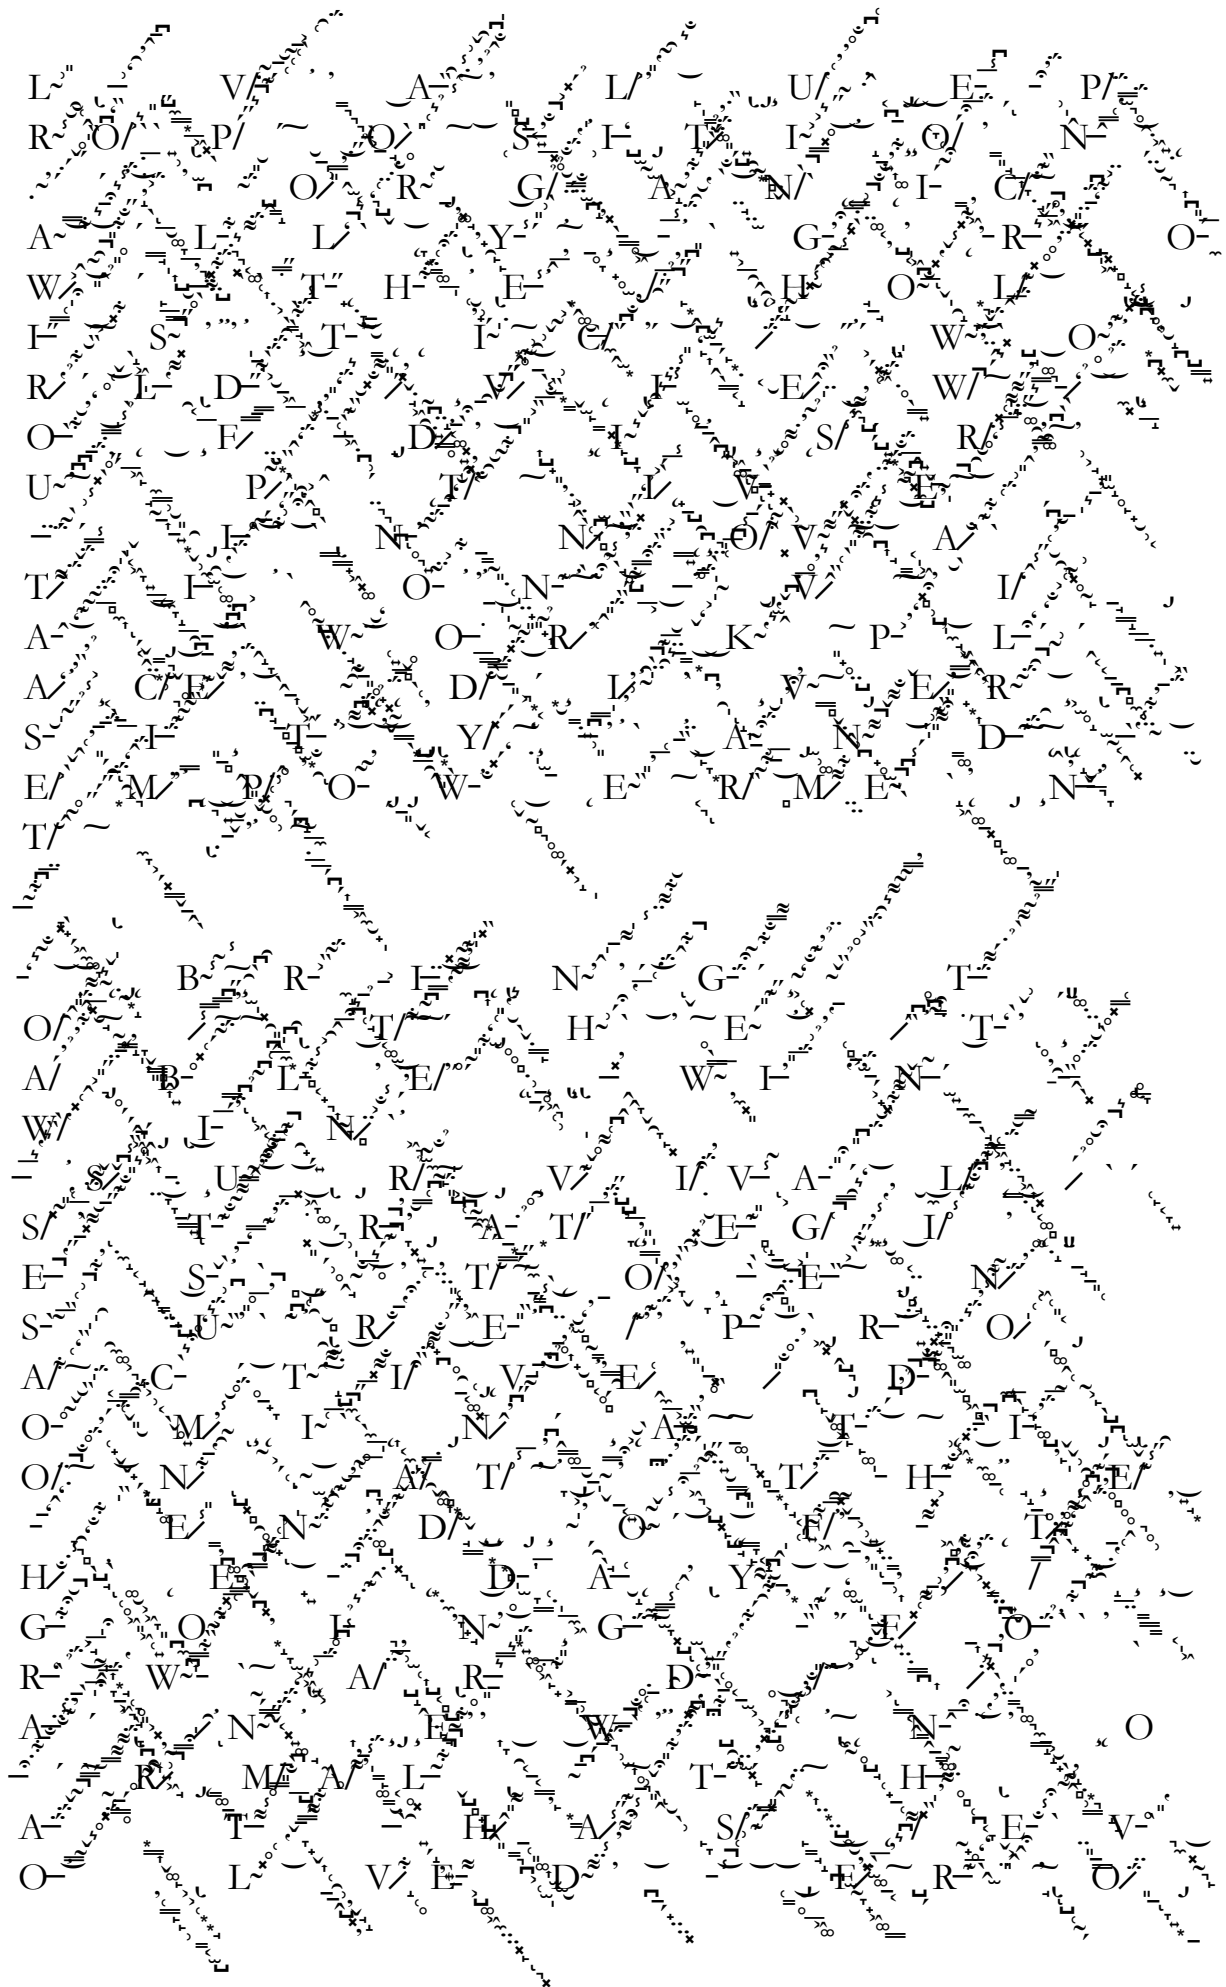 L VALUE P
ROPOSITION
ORGANIC
ALLY GRO
W THE HOL
ISTIC WO
RLD VIEW
OF DISR
UPTIVE
INNOVA
TION VI
A WORKPL
ACE DIVER
SITY AND
EMPOWERMEN
T
BRING T
O THE T
ABLE WIN
WIN
SURVIVAL
STRATEGI
ES TO EN
SURE PRO
ACTIVE D
OMINATI
ON AT THE
END OF T
HE DAY
GOING FO
RWARD
A NEW NO
RMAL TH
AT HAS EV
OLVED FRO